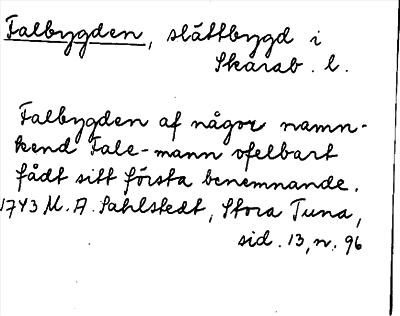 Falbygden, slättbygd i
Skarab. l.
Falbygden af någor namn-
kend Fale-mann ofelbart
fådt sitt första benemnande.
1743 M. A. Sahlstedt, Stora Tuna,
sid. 13, n. 96